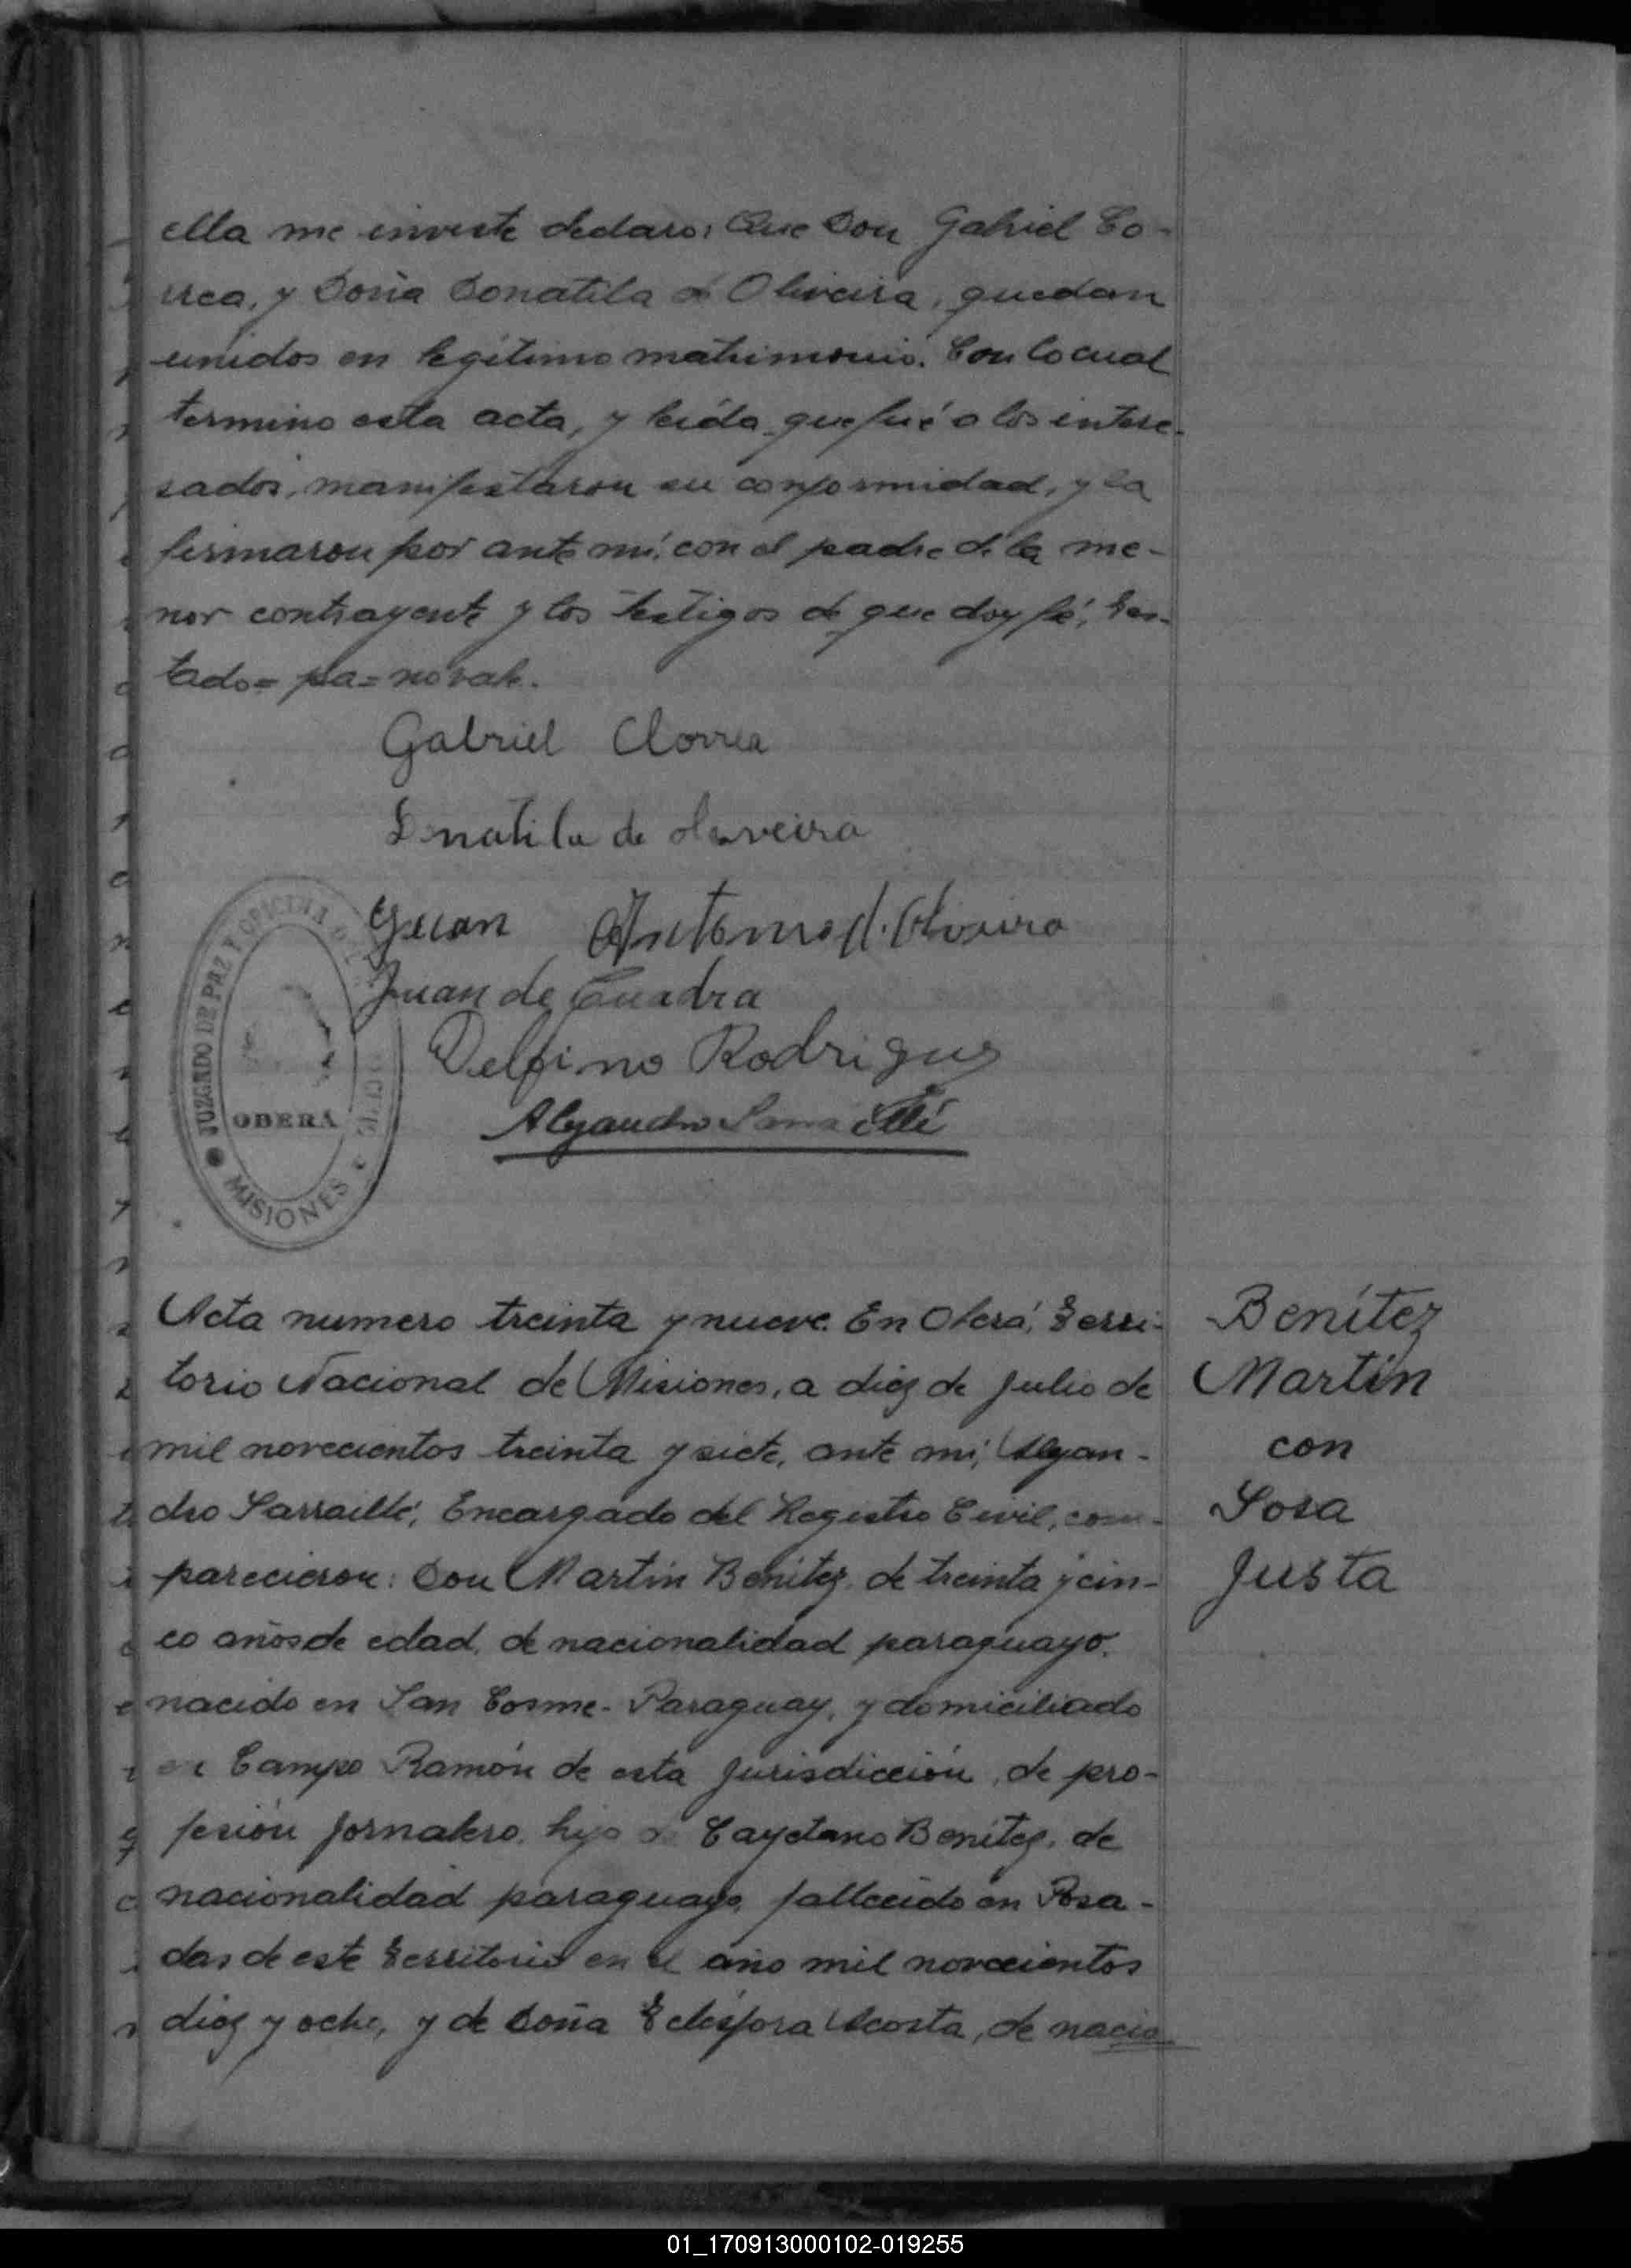 ella me inviste declaro: Que Don Gabriel Co-
rrea, y Doña Donatila de Oliveira, quedan
unidos en legítimo matrimonio. Con lo cual
termino esta acta, y leída que fué a los intere-
sados, manifestaron su conformidad, y la
firmaron por ante mí, con el padre de la me-
nor contrayente y los testigos de que doy fé, Tes-
tado= pa= no vale.
Gabriel Correa
Donatila de oliveira
Juan Antonio d. Oliveira
Juan de Cuadra
Delfino Rodrigues
Alejandro Sarraillé
JUZGADO DE PAZ Y OFICINA DEL
OBERÁ
MISIONES
Acta numero treinta y nueve. En Oberá, Terri-
torio Nacional de Misiones, a diez de Julio de
mil novecientos treinta y siete, ante mí, Alejan-
dro Sarraillé, Encargado del Registro Civil, com-
parecieron: Don Martín Benítez, de treinta y cin-
co años de edad, de nacionalidad paraguayo,
nacido en San Cosme- Paraguay, y domiciliado
en Campo Ramón de esta Jurisdicción, de pro-
fesión Jornalero, hijo de Cayetano Benítez, de
nacionalidad paraguayo, fallecido en Posa-
das de este Territorio en el año mil novecientos
diez y ocho, y de Doña Telésfora Acosta, de nacio
Benítez
Martín
con
Sosa
Justa
01_170913000102-019255